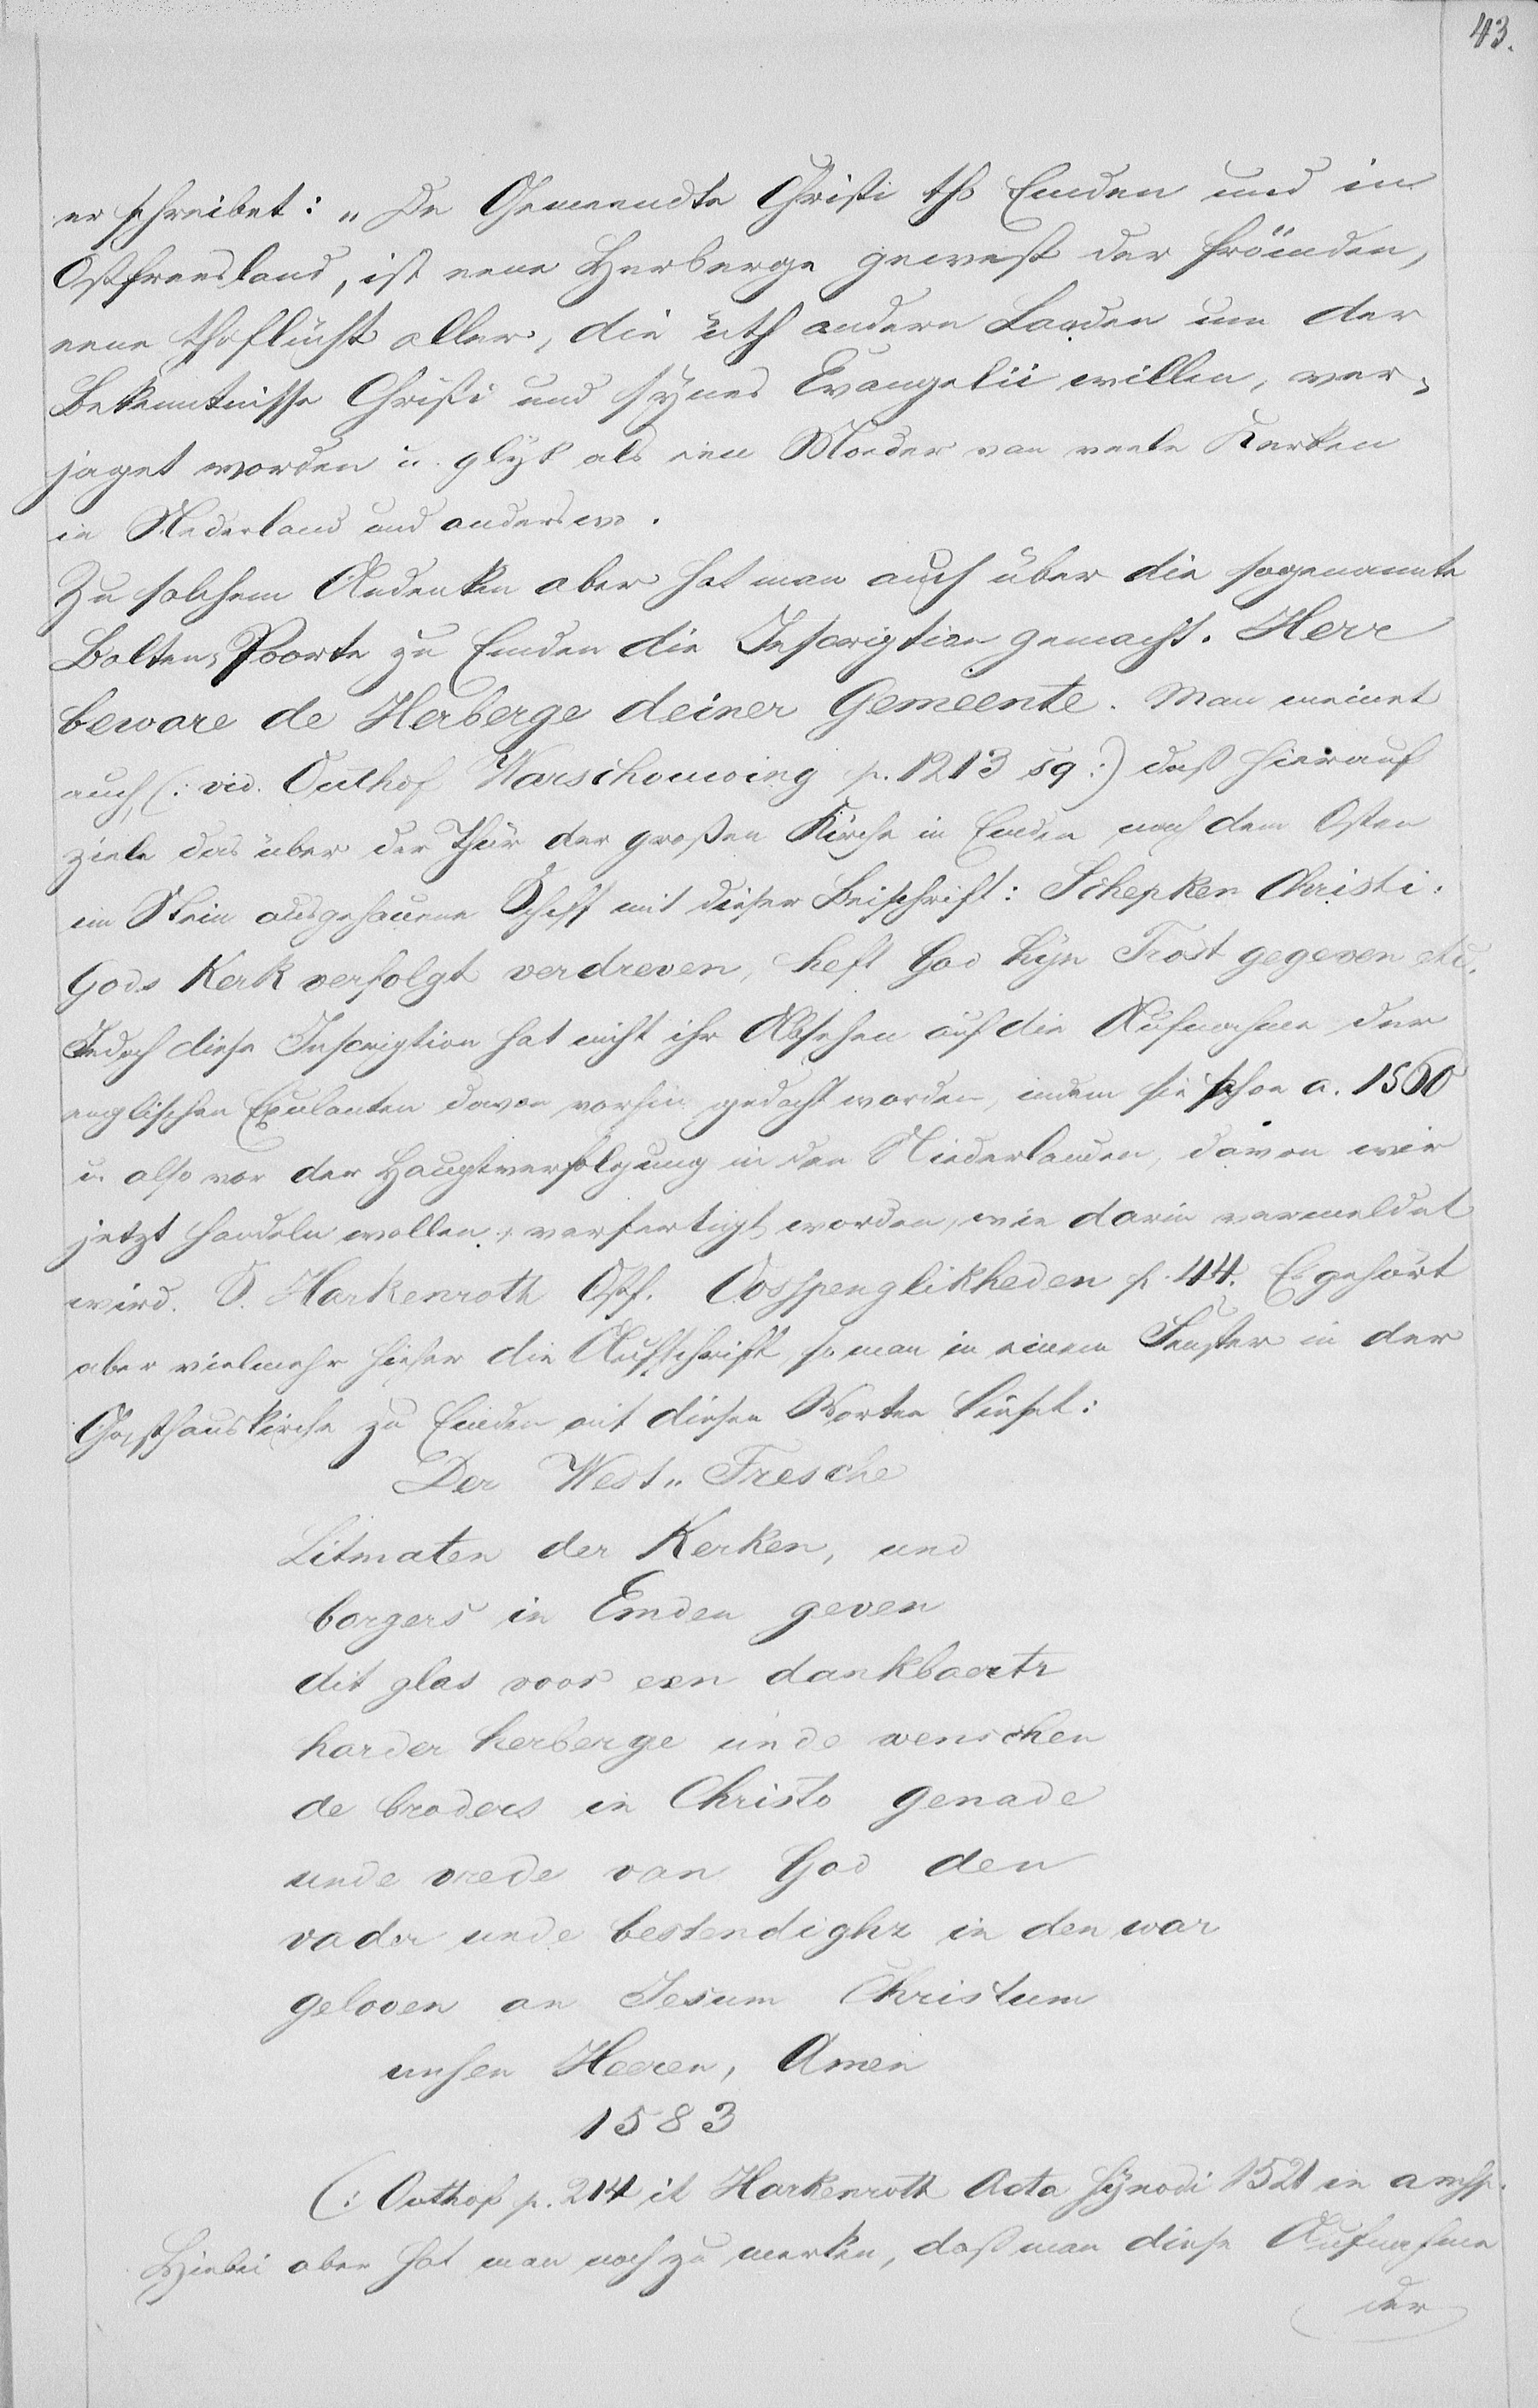 43.
er schreibet: „De Gemeendte Christi tho Emden und in
Ostfreesland, ist eene Herberge gewest der frömden,
eene thoflucht aller, die uth andern Landen um der
Bekenntnisse Christi und synes Evangelii willen, ver-
jaget worden u. glyk als een Moeder van veele Kerken
in Nederland und anderswo.
Zu solchem Andenken aber hat man auch über die sogenannte
Bolten-Poorte zu Emden die Inscription gemacht. Herr
beware de Herberge deiner Gemeente. Man meinet
auch, (: vid. Outhof Warschouwing p. 1213 sq :) daß hierauf
ziele das über der Thür der großen Kirche in Emden nach dem Osten
in Stein ausgehauene Schiff mit dieser Beischrift: Schepken Christi:
Gods Kerk verfolgt verdreven, heft God hyn Trost gegeven etc.
Jedoch diese Inscription hat nicht ihr Absehen auf die Aufnahme der
englischen Exulanten davon vorhin gedacht worden, indem sie schon a. 1560
u. also vor der Hauptverfolgung in den Niederlanden, davon wir
jetzt handeln wollen, verfertigt worden, wie darin vermeldet
wird. S. Harkenroth Ostf. Oosspenglikheden p. 44. Es gehört
aber vielmehr hieher die Aufschrift so man in einem Fenster in der
Gasthauskirche zu Emden mit diesen Worten lieset:
Der West„Fresche
Litmaten der Kerken, und
borgers in Emden geven
dit glas voor een dankbaerts
harder herberge unde wenschen
de broders in Christo genade
unde vrede van God den
vader unde bestendighr in den war
geloven an Jesum Christum
unsen Heeren, Amen
1583
(: Outhof p. 214 it Harkenroth Acta Synodi 1521 in
Hiebei aber hat man noch zu merken, daß man diese Aufnahme
der